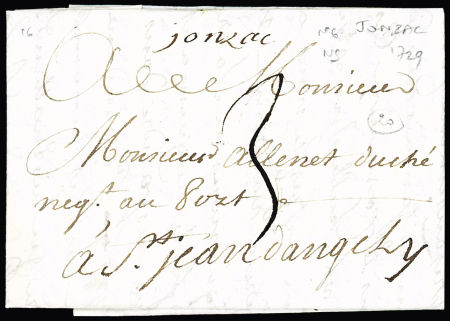 16
jonzac
N6 JONZAC
N5 1729
A Monsieur
20
Monsieur Allenet duché
3
neg.t au Port
à S.t jean dangely